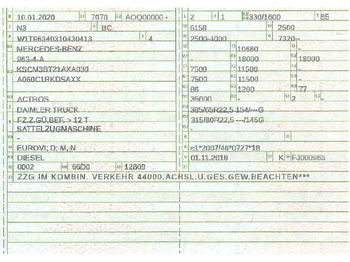 10.01.2020 7070 AOQ00000 -
N3 BC
W1T96340310430413 4
MERCEDES-BENZ
963-4-A
KSCM3BT21AXA030
A060C1RKDSAXX
ACTROS
DAIMLER TRUCK
FZ.Z.GÜ.BEF. > 12 T
SATTELZUGMASCHINE
EUROVI; D; M, N
DIESEL
0002 66D0 12809
2 1 330/1600 85
6156 2500
2500-4000 7320
10680 -
- 18000 18000
7500 11500 -
7500 11500 -
86 1200 77
36000 - 2 -
385/65R22,5
315/80R22,5
-
e1*2007/46*0727*18
01.11.2019 K FJ000953
ZZG IM KOMBIN. VERKEHR 44000,ACHSL.U.GES.GEW.BEACHTEN***